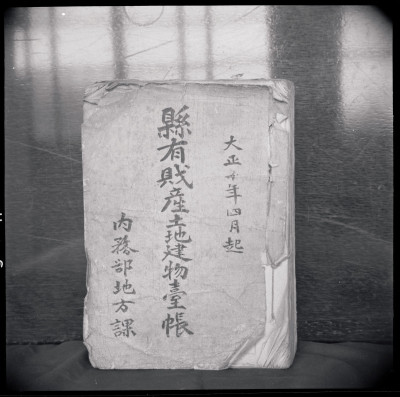 大正十年四月起
縣有財産土地建物臺帳
内務部地方課